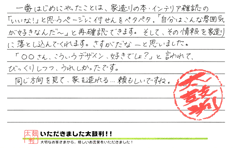 一番はじめにやったことは、家造りの本・インテリア雑誌の
「いいな!」と思うページに付せんをペタペタ。「自分はこんな雰囲気
が好きなんだ〜」と再確認できます。そして、その情報を家造り
に落とし込んでくれます。さすがだなーと思いました。
「〇〇さん、こういうデザイン、好きでしょ?」と言われて、
びっくりしつつ、うれしかったです。
同じ方向を見て、家を造れる…頼もしいですね。
大鼓判
いただきました大鼓判!!
大切なお客さまから、嬉しいお言葉をいただきました!